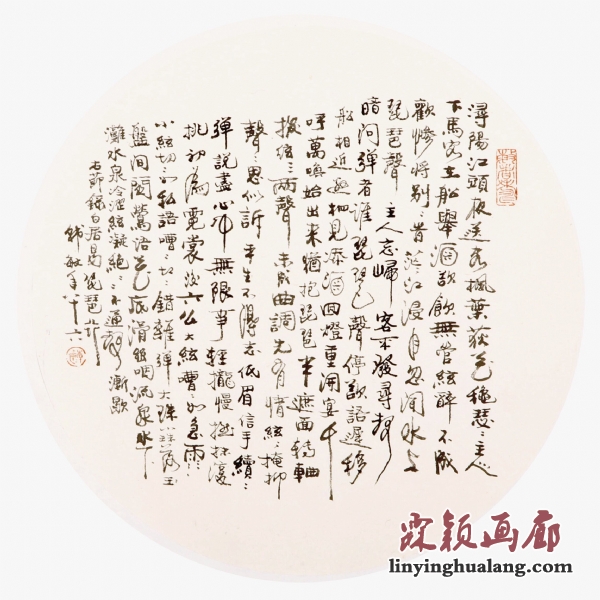 潯陽江頭夜送客楓葉荻花秋瑟瑟主人
下馬客在船舉酒欲飲無管絃醉不成
歡慘將別別昔茫江浸月忽聞水上
琵琶聲主人忘歸客不發尋聲
暗問彈者誰琵琶聲停欲語遲移
船相近邀相見添酒回燈重開宴千
呼萬喚始出來猶抱琵琶半遮面轉軸
撥絃三兩聲未成曲調先有情絃絃掩抑
聲聲思似訴平生不得志低眉信手續續
彈說盡心中無限事輕攏慢撚抹復
挑初為霓裳後六么大絃嘈嘈如急雨
小絃切切如私語嘈嘈切切錯雜彈大珠小珠落玉
盤間關鶯語花底滑幽咽流泉水下
灘水泉冷澀絃凝絕凝絕不通聲漸歇
右節錄白居易琵琶行
錢敏年八十六
霖穎画廊
linyinghualang.com